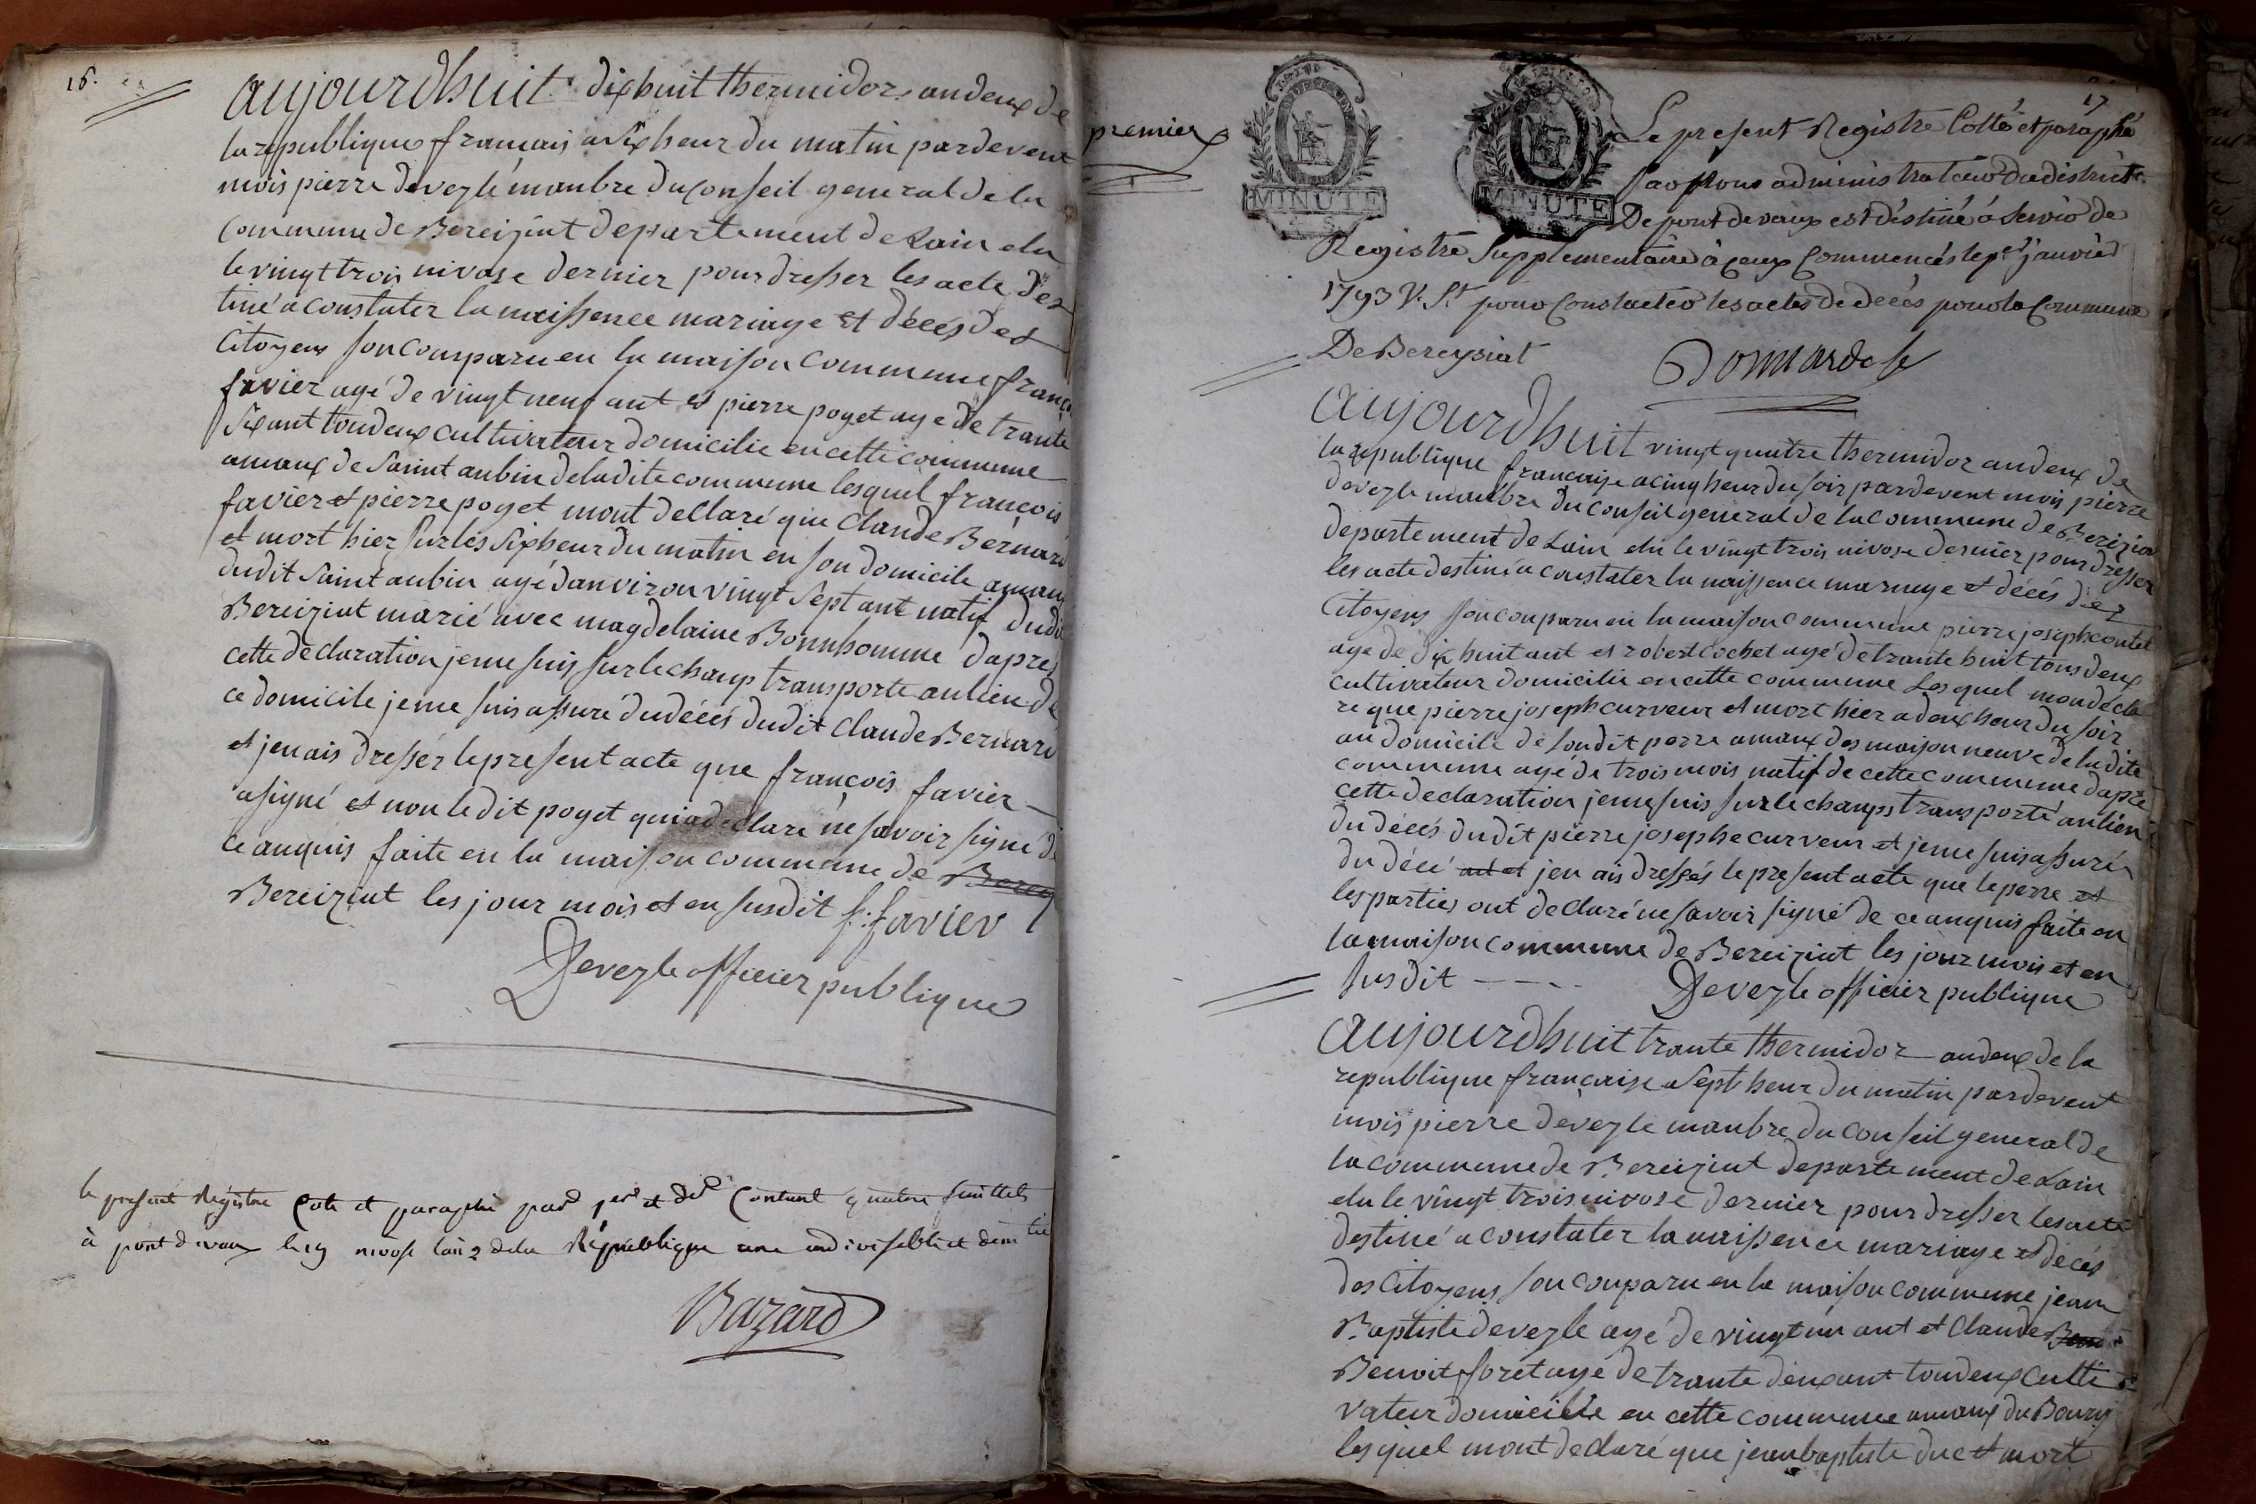 16.
aujourdhuit dixhuit thermidor andeux de
la republique français a Six heur du matin pardevent
mois pierre devezle manbre du Conseil general de la
Commune de Bereiziat departement de Lain elu
le vingt trois nivose dernier pour dresser les acte des
tiné a constater la naissence mariage et décés des
Citoyens son comparu en la maison commune franço
favier agé de vingt neuf ant et pierre poget age de trante
Six ant toudeux cultivateur domicilie en cette commune
amaux de Saint aubin de la dite commune lesquel françois
favier et pierre poget mont dellaré que Claude Bernard
et mort hier sur les Six heur du matin en son domicile amaux
dudit Saint aubin agé danviron vingt Sept ant natif dudit
Bereiziat marié avec magdelaine Bonnhomme dapres
cette declaration jeme suis sur le champ transporte au lieu de
ce domicile jeme suis assuré du décés dudit Claude Bernard
et jen ais dressér le present acte que françois favier
a signé et non le dit poget qui a declaré ne savoir signé de
ce anquis faite en la maison commune de Berey
Bereiziat les jour mois et en susdit f. favier
Devezle officier publique
le present Régistre coté et paraphé par per et der Contant quatre feuillets
à pont de vaux le 19 nivose l'an 2 de la République une indivisible et
Bazard
premier
17
MINUTE
MINUTE
Le present Registre Cotté et paraphé
par nous administrateur du district
De pont devaux est déstiné à Servir de
Registre Supplementaire à ceux Commencés le pr janvier
1793 V. St pour Constater les actes de décés pour la Commune
De Bereysiat
aujourdhuit vingt quatre thermidor andeux de
la republique francaise a cinq heur du soir pardevent mois pierre
devezle manbre du Conseil general de la commune de Bereiziat
departement de Lain elu le vingt trois nivose dernier pour dresser
les acte destiné a constater la naissence mariage et décés des
Citoyens son conparu en la maison commune pierre joseph contet
age de dix huit ant et robert Cochet agé de trante huit tous deux
cultivateur domicilie en cette commune Lesquel mon décla
re que pierre joseph curveur et mort hier a deux heur du soir
au domicile de soudit perre amaux des maison neuve de la dite
commune agé de trois mois natif de cette commune dapre
cette declaration jeme suis sur le champs transporté au lieu
du décés dudit pierre josephe curveur et jeme suis assuré
du décé et jen ais dressés le present acte que le perre et
les parties ont declaré ne savoir signé de ce anquis faite en
la maison commune de Bereiziat les jour mois et en
susdit - - - - Devezle officier publique
aujourdhuit trante thermidor andeux de la
republique française a Sept heur du matin pardevent
mois pierre devezle manbre du Conseil general de
la commune de Bereiziat departement de Lain
elu le vingt trois nivose dernier pour dresser les acte
destiné a constater la naissence mariage et décés
des Citoyens son conparu en la maison commune jean
Baptiste devezle agé de vingt un ant et Claude
Benoit foret agé de trante deux ant toudeux culti
vateur domicilie en cette commune amaux du Bourg
lesquel mont declaré que jean baptiste duc et mort